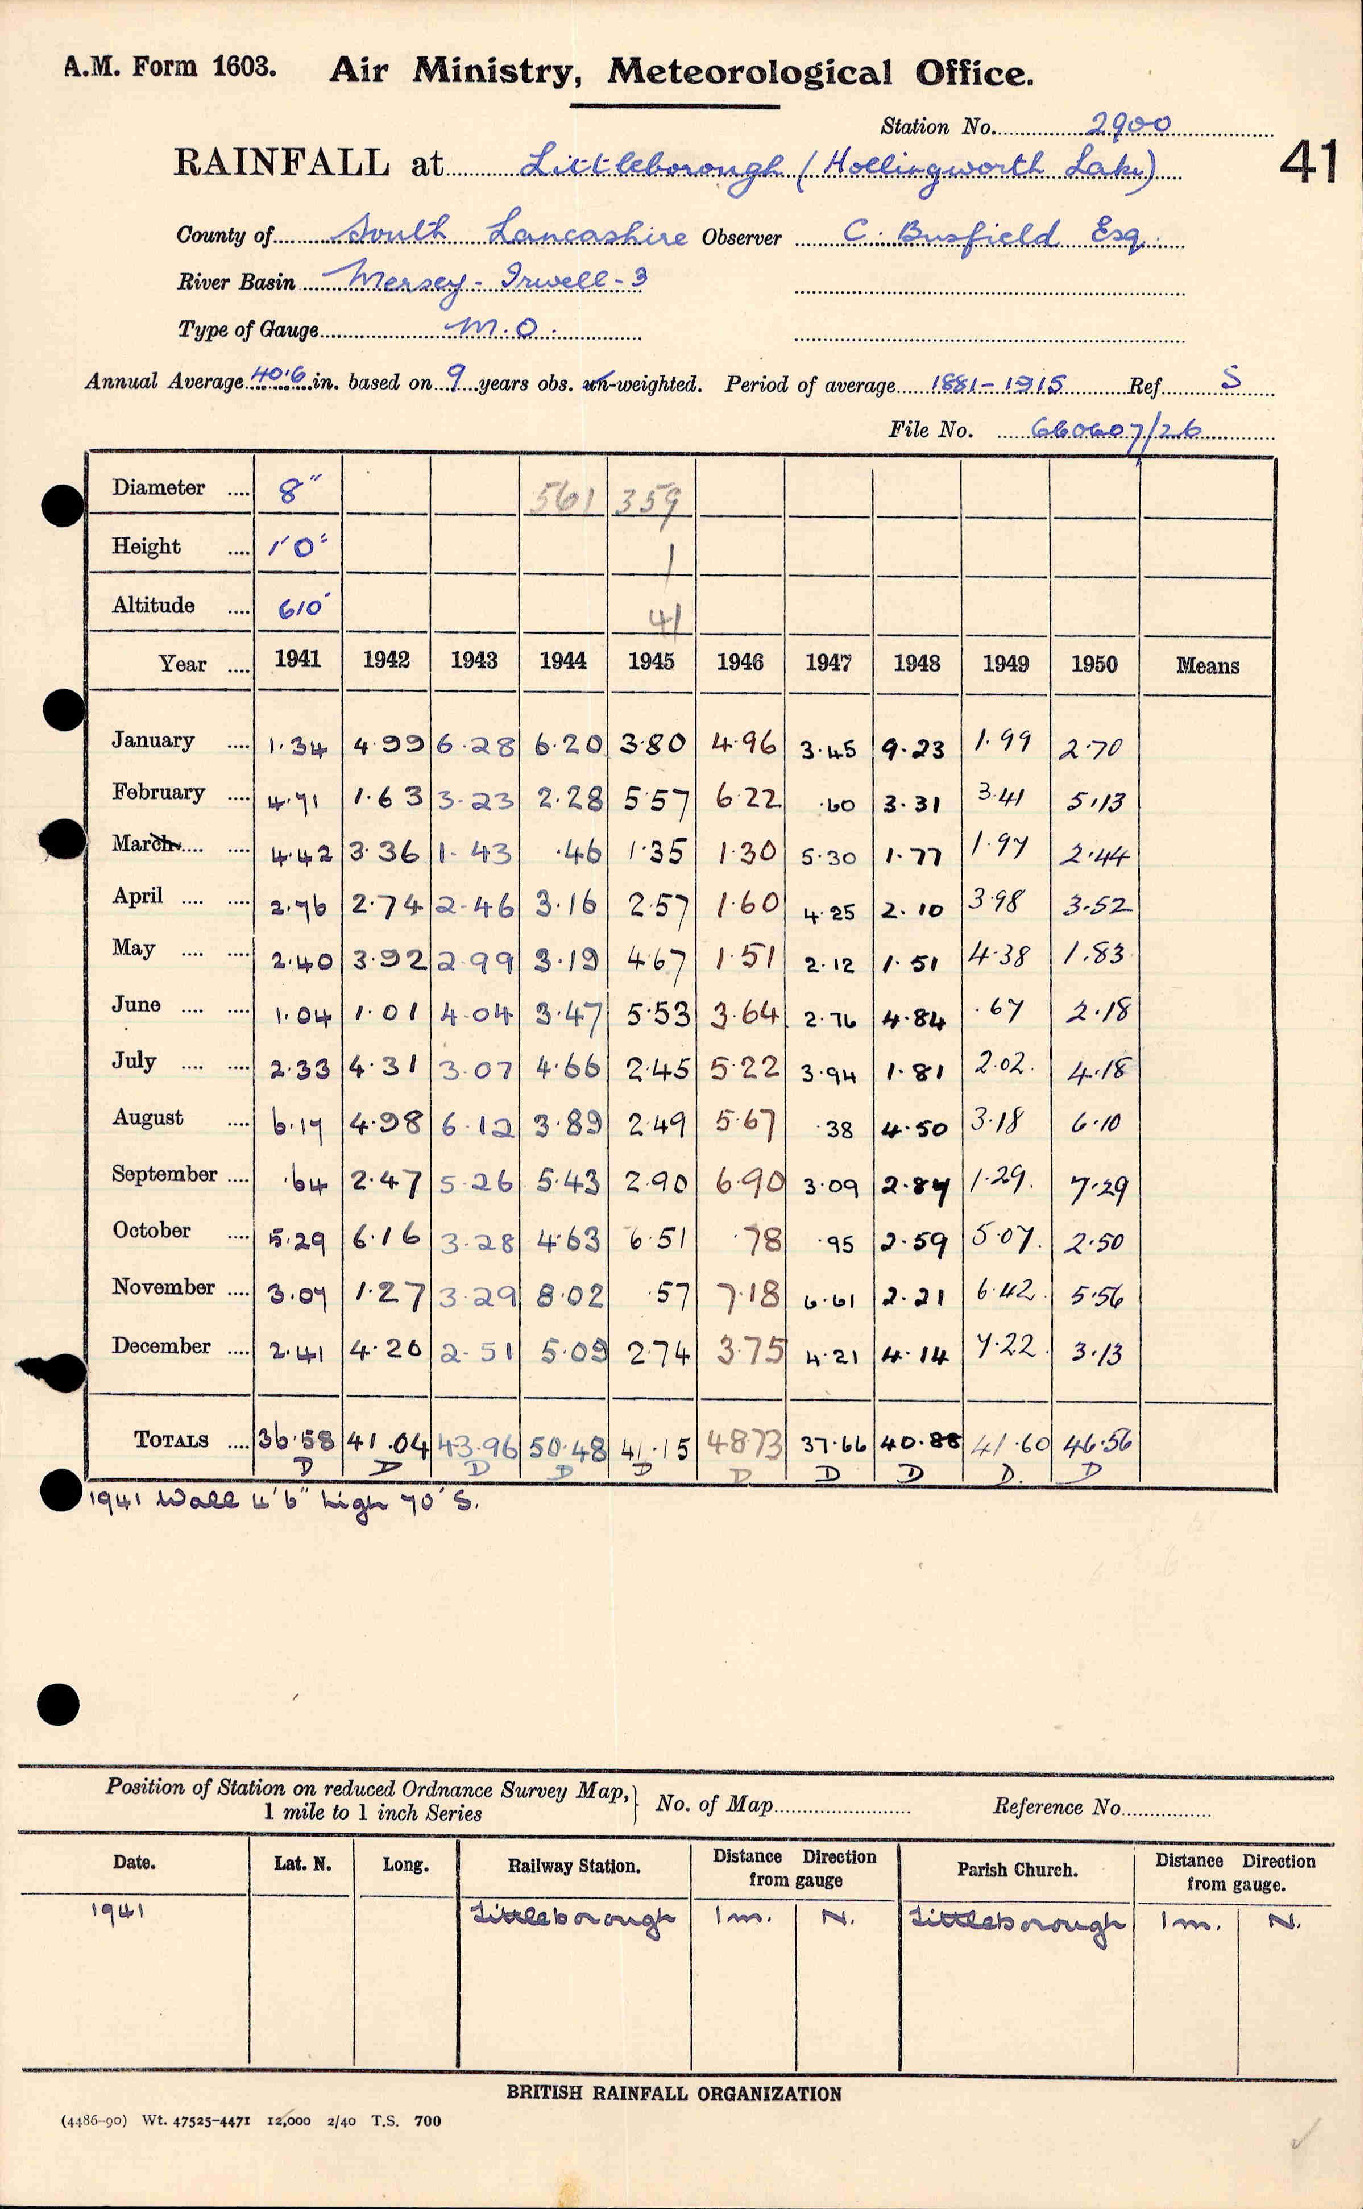 A.M. Form 1603. Air Ministry, Meteorological Office.
Station No. 2900
RAINFALL at Littleborough (Hollingworth Lake) 41
County of South Lancashire Observer C. Busfield Esq.
River Basin Mersey - Irwell - 3
Type of Gauge M.O.
Annual Average 40.6 in. based on 9 years obs. un-weighted. Period of average 1881-1915 Ref. S
File No. 660607/26
Diameter .... 8" 561 359
Height .... 1'0" 1
Altitude .... 610' 41
Year .... 1941 1942 1943 1944 1945 1946 1947 1948 1949 1950 Means
January .... 1.34 4.99 6.28 6.20 3.80 4.96 3.45 9.23 1.99 2.70
February .... 4.71 1.63 3.23 2.28 5.57 6.22 .60 3.31 3.41 5.13
March .... .... 4.42 3.36 1.43 .46 1.35 1.30 5.30 1.77 1.97 2.44
April .... .... 2.76 2.74 2.46 3.16 2.57 1.60 4.25 2.10 3.98 3.52
May .... .... 2.40 3.92 2.99 3.19 4.67 1.51 2.12 1.51 4.38 1.83
June .... .... 1.04 1.01 4.04 3.47 5.53 3.64 2.76 4.84 .67 2.18
July .... .... 2.33 4.31 3.07 4.66 2.45 5.22 3.94 1.81 2.02. 4.18
August .... 6.17 4.98 6.12 3.89 2.49 5.67 .38 4.50 3.18 6.10
September .... .64 2.47 5.26 5.43 2.90 6.90 3.09 2.87 1.29. 7.29
October .... 5.29 6.16 3.28 4.63 6.51 .78 .95 2.59 5.07. 2.50
November .... 3.07 1.27 3.29 8.02 .57 7.18 6.61 2.21 6.42. 5.56
December .... 2.41 4.20 2.51 5.09 2.74 3.75 4.21 4.14 7.22. 3.13
TOTALS .... 36.58 41.04 43.96 50.48 41.15 48.73 37.66 40.88 41.60 46.56
D D D D D D D D D. D
1941 Wall 4'6" high 70' S.
Position of Station on reduced Ordnance Survey Map, 
1 mile to 1 inch Series } No. of Map Reference No.
Date. Lat. N. Long. Railway Station. Distance from gauge Direction Parish Church. Distance from gauge. Direction
1941 Littleborough 1 m. N. Littleborough 1 m. N.
BRITISH RAINFALL ORGANIZATION
(4486-90) Wt. 47525-4471 12,000 2/40 T.S. 700